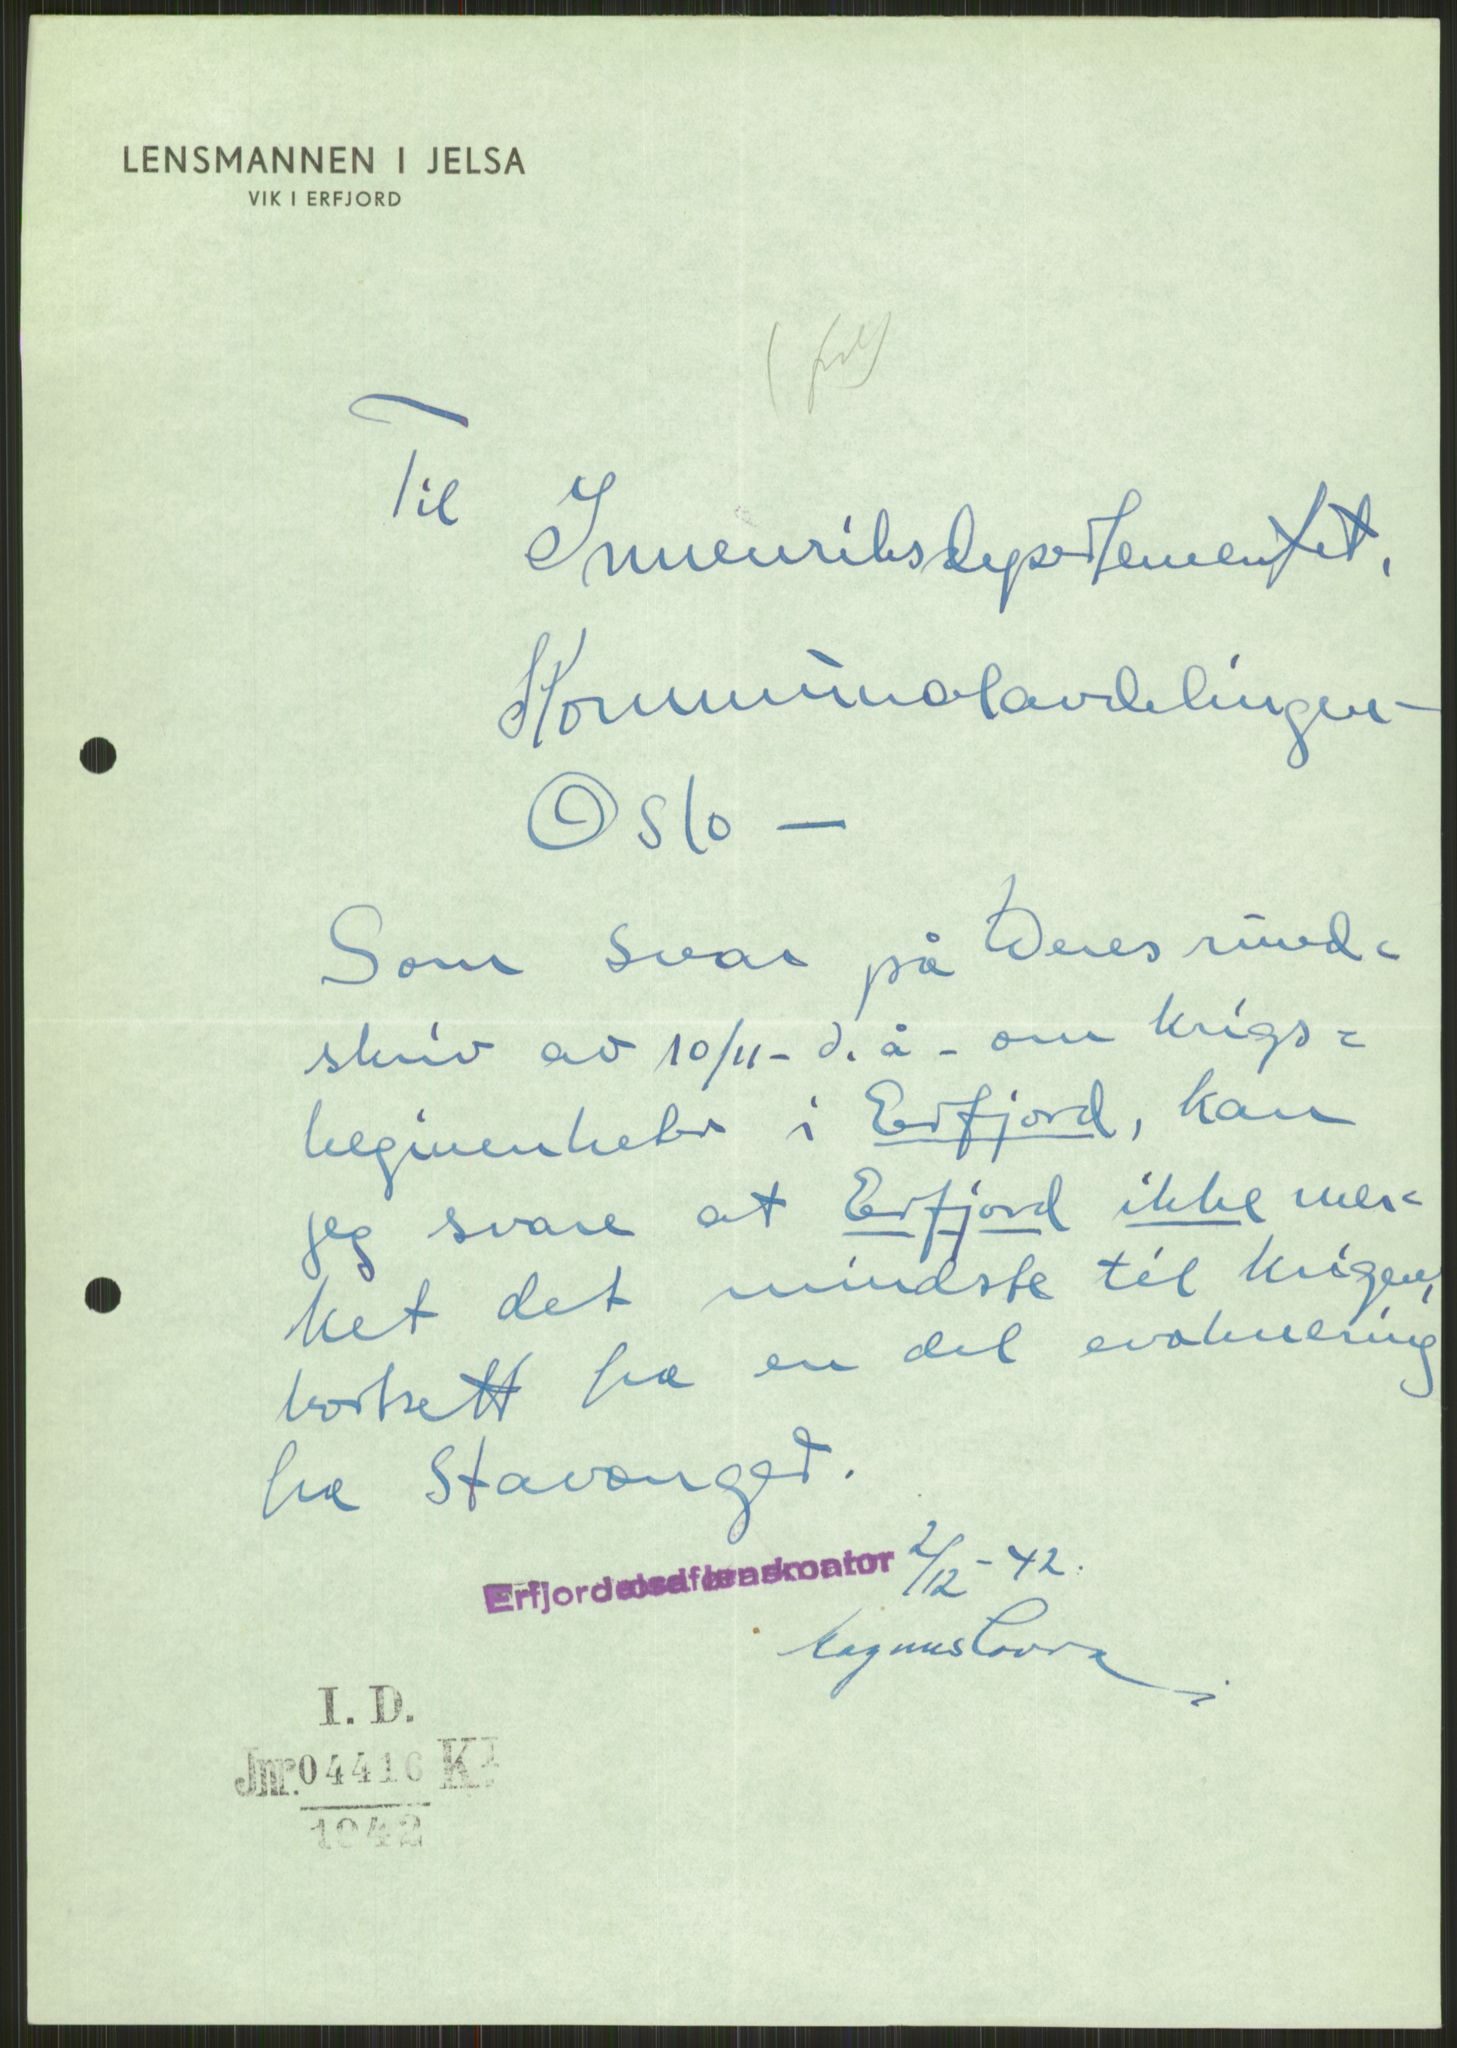 LENSMANNEN I JELSA
VIK I ERFJORD
Til
Innenriksdepartementet,
Kommunalavdelingen-
Oslo —
Som svar på Deres rund=
skriv av 10/11- d. å - om krigs=
begivenheter i Erfjord, kan
jeg svare at Erfjord ikke mer=
ket det mindste til krigen,
bortsett fra en del evakuering
fra Stavanger.
2/12-42.
Magnus
I. D.
Jnr. 04416 K
1942